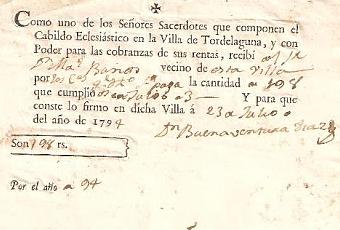 Como uno de los Señores Sacerdotes que componen el
Cabildo Eclesiástico en la Villa de Tordelaguna, y con
Poder para las cobranzas de sus rentas, recibí
vecino de esta villa
por los paga la cantidad de 198
que cumplió en Julio a 3 Y para que
conste lo firmo en dicha Villa á 23 de Julio
del año de 1794
Dn Buenaventura Diaz
Son 198 rs.
Por el año a 94